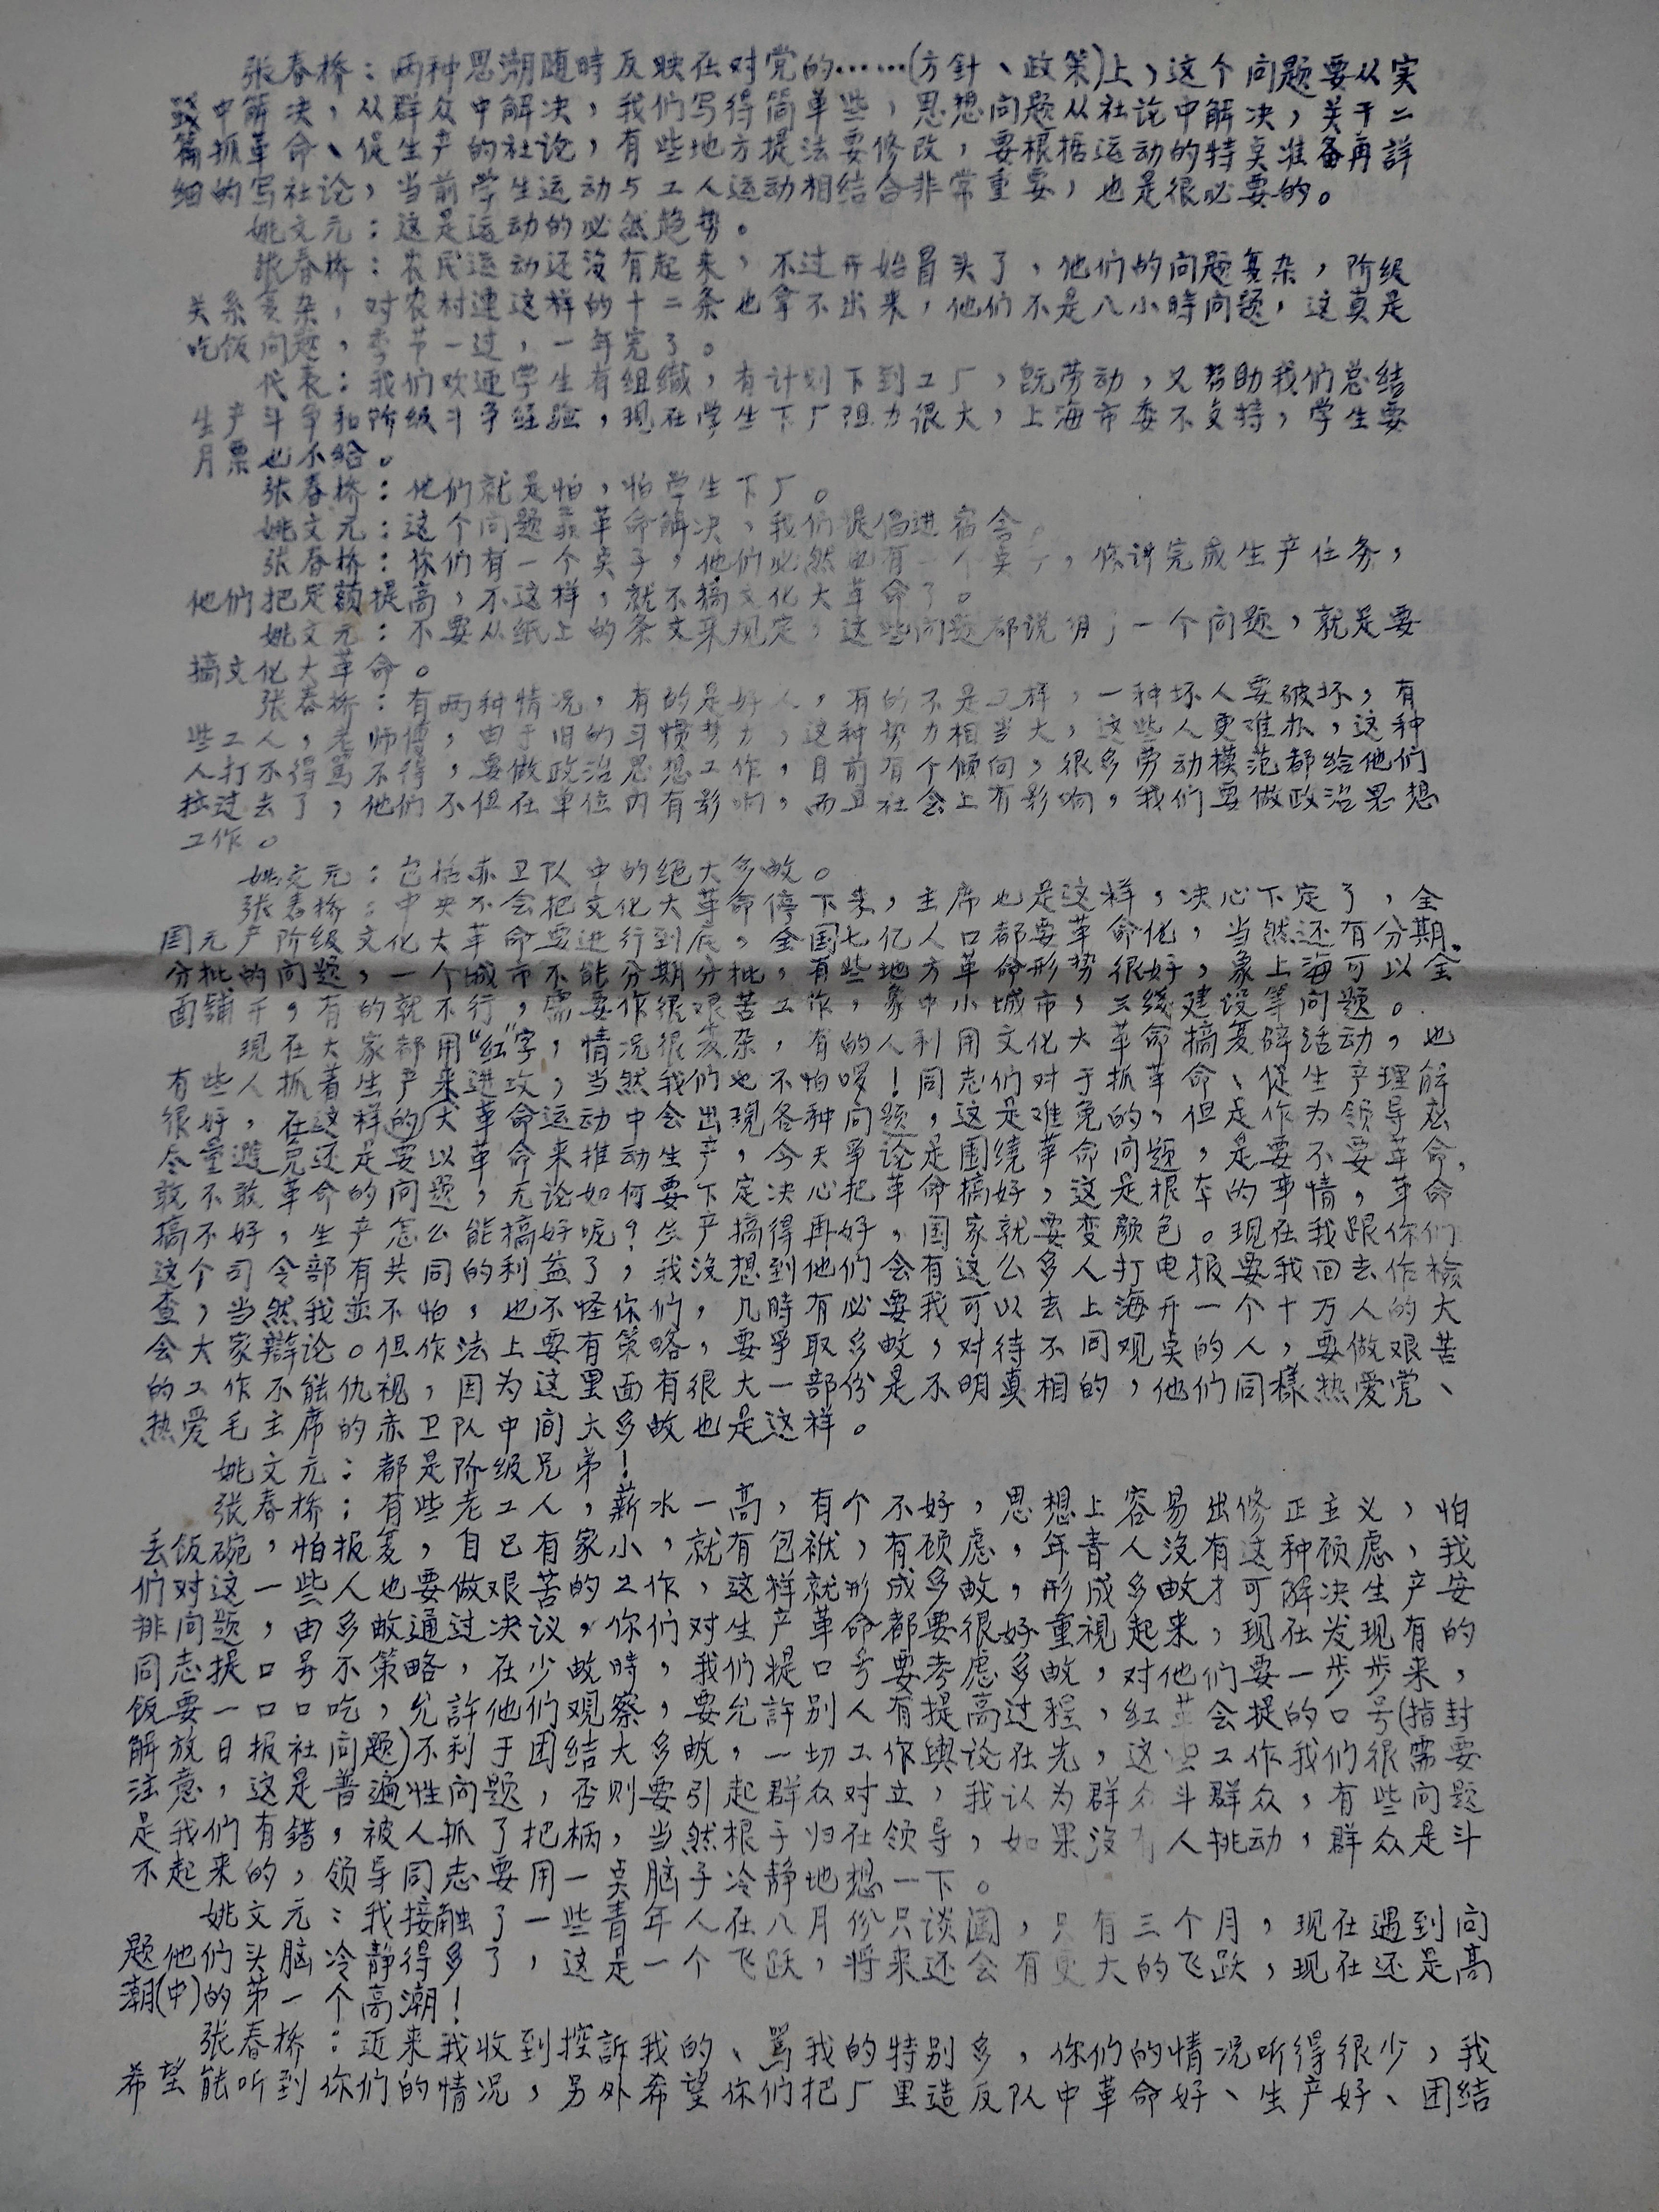 张春桥：两种思潮随時反映在对党的……(方針、政策)上，这个问题要从实
践中解决，从群众中解决，我们写得简单些，思想问题从社论中解决，关于二
篇抓革命、促生产的社论，有些地方提法要修改，要根据运动的特点准备再詳
细的写社论，当前学生运动与工人运动相结合非常重要，也是很必要的。
姚文元：这是运动的必然趋势。
张春桥：农民运动还没有起来，不过开始冒头了，他们的问题复杂，阶级
关系复杂，对农村連这样的十二条也拿不出来，他们不是八小時问题，这真是
吃饭问题，季节一过，一年完了。
代表：我们欢迎学生有组织，有计划下到工厂，既劳动，又帮助我们总结
生产斗争和阶级斗争经验，现在学生下厂阻力很大，上海市委不支持，学生要
月票也不给。
张春桥：他们就是怕，怕学生下厂。
姚文元：这个问题靠革命解决，我们提倡进宿舍。
张春桥：你们有一个点子，他们必然也有一个点子，你讲完成生产任务，
他们把定额提高，不这样，就不搞文化大革命了。
姚文元：不要从纸上的条文来规定，这些问题都说明了一个问题，就是要
搞文化大革命。
张春桥：有两种情况，有的是好人，有的不是这样，一种坏人要破坏，有
些工人，老师傅，由于旧的习惯势力，这种势力相当大，这些人更难办，这种
人打不得骂不得，要做政治思想工作，目前有个倾向，很多劳动模范都给他们
拉过去了，他们不但在单位内有影响，而且社会上有影响，我们要做政治思想
工作。
姚文元：包括赤卫队中的绝大多数。
张春桥：中央不会把文化大革命停下来，主席也是这样，决心下定了，全
国无产阶级文化大革命要进行到底，全国七亿人口都要革命化，当然还有分期
分批的问题，一个城市不能分期分批，有些地方革命形势很好，象上海可以全
面铺开，有的就不行，需要作很艰苦工作，象中小城市，三线建设等问题。
现在大家都用“红”字，情况很复杂，有的人利用文化大革命搞复辟活动，也
有些人抓着生产来进攻，当然我们也不怕啰！同志们对于抓革命、促生产理解
很好，在这样的大革命运动中会出现各种问题，这是难免的，但是作为领导应
尽量避免还是要以革命来推动生产，今天争论是围绕革命问题，是要不要革命，
敢不敢革命的问题，无论如何要下定决心把革命搞好，这是根本的事情，革命
搞不好，生产怎么能搞好呢？生产搞得再好，国家就要变颜色。现在我跟你们
这个司令部有共同的利益了，我没想到他们会有这么多人打电报要我回去作检
查，当然我並不怕，也不怪你们，几時有必要我可以去上海开一个十万人的大
会大家辯论。但作法上要有策略，要争取多数，对待不同观点的人，要做艰苦
的工作不能仇视，因为这里面有很大一部份是不明真相的，他们同樣热爱党、
热爱毛主席的赤卫队中间大多数也是这样。
姚文元：都是阶级兄弟！
张春桥：有些老工人，薪水一高，有个不好，思想上容易出修正主义，怕
丢饭碗，怕报复，自己有家小，就有包袱，有顾虑，年青人没有这种顾虑，我
们对这一些人也要做艰苦的工作，这样就形成多数，形成多数才可解决生产安
排问题，由多数通过决议，你们对生产革命都要很好重視起来，现在发现有的
同志提口号不策略，在少数時，我们提口号要考虑多数，对他们要一步步来，
饭要一口口吃，允許他们观察，要允許别人有提高过程，红革会提的口号(指封
解放日报社问题)不利于团结大多数，一切工作舆论在先，这些工作我们很需要
注意，这是普遍性问题，否则要引起群众对立，我认为群众斗群众，有些问题
是我们有错，被人抓了把柄，当然根子归在领导，如果没有人挑动，群众是斗
不起来的，领导同志要用一点脑子冷静地想一下。
姚文元：我接触了一些青年人在八月份只谈闯，只有三个月，现在遇到问
题他们头脑冷静得多了，这是一个飞跃，将来还会有更大的飞跃，现在还是高
潮(中)的第一个高潮！
张春桥：近来我收到控訴我的、骂我的特别多，你们的情况听得很少，我
希望能听到你们的情况，另外希望你们把厂里造反队中革命好、生产好、团结